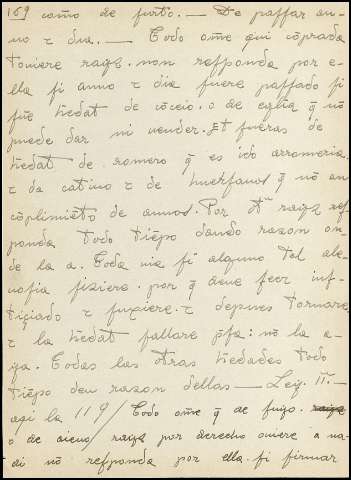 169 como de furto. — De paſſar an-
no ⁊ dia. — Todo ome qui cõprada
touiere rayz. non reſponda por e-
lla ſi anno ⁊ dia fuere paſſado ſi
fue hedat de cõceio. o de egl̃ia q̃ nõ
puede dar ni uender. Et fueras de
hedat de romero q̃ es ido arromeria.
⁊ de catiuo ⁊ de huerfanos q̃ nõ an
cõplimiẽto de annos. Por rayz reſ-
ponda todo tiẽpo dando razon on-
de la a. Toda uia ſi alguno tal ale-
uoſia fiziere. por q̃ deue ſeer iuſ-
tiçiado ⁊ fuxiere. ⁊ depues tornare
⁊ la hedat fallare p̃ſa: nõ la a-
ya. Todas las otras hedades todo
tiẽpo den razon dellas — Ley II. —
aqi la 119/ Todo ome q̃ de fuego.
o de aieno rayz por derecho ouiere a na-
di nõ reſponda por ella. ſi firmar